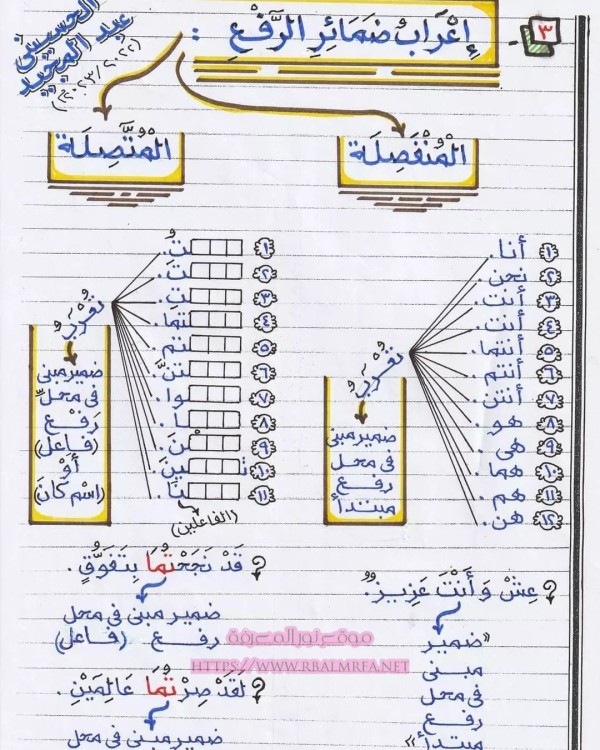 ٣
إِعْرَابُ ضَمَائِرِ الرَّفْعِ :
الحسيني
عبد المجيد
(٢٠٢٣/٢٠٢٢)
الْمُنْفَصِلَة
الْمُتَّصِلَة
١ أنا.
٢ نحن.
٣ أنتَ.
٤ أنتِ.
٥ أنتما.
٦ أنتم.
٧ أنتن.
٨ هو.
٩ هي.
١٠ هما.
١١ هم.
١٢ هن.
تُعْرَبُ
ضمير مبني
في محل
رفع
مبتدأ
١ تُ.
٢ تَ.
٣ تِ.
٤ تما.
٥ تم.
٦ تنَّ.
٧ وا.
٨ ا.
٩ نَ.
١٠ تـ ينَ.
١١ نَا.
(الفاعلين)
تُعْرَبُ
ضمير مبني
في محلِّ
رَفْع
(فَاعل)
أوْ
(اسْم كَانَ)
عِشْ وَ أَنْتَ عَزِيزٌ.
"ضمير
مبني
في محل
رفع
مبتدأ"
قَدْ نَجَحْتُمَا بِتَفَوُّقٍ.
ضمير مبني في محل
رفع (فاعل)
لَقَدْ صِرْتُمَا عَالِمَيْنِ.
ضمير مبني في محل
موقع نور المعرفة
HTTPS://WWW.RBALMRFA.NET